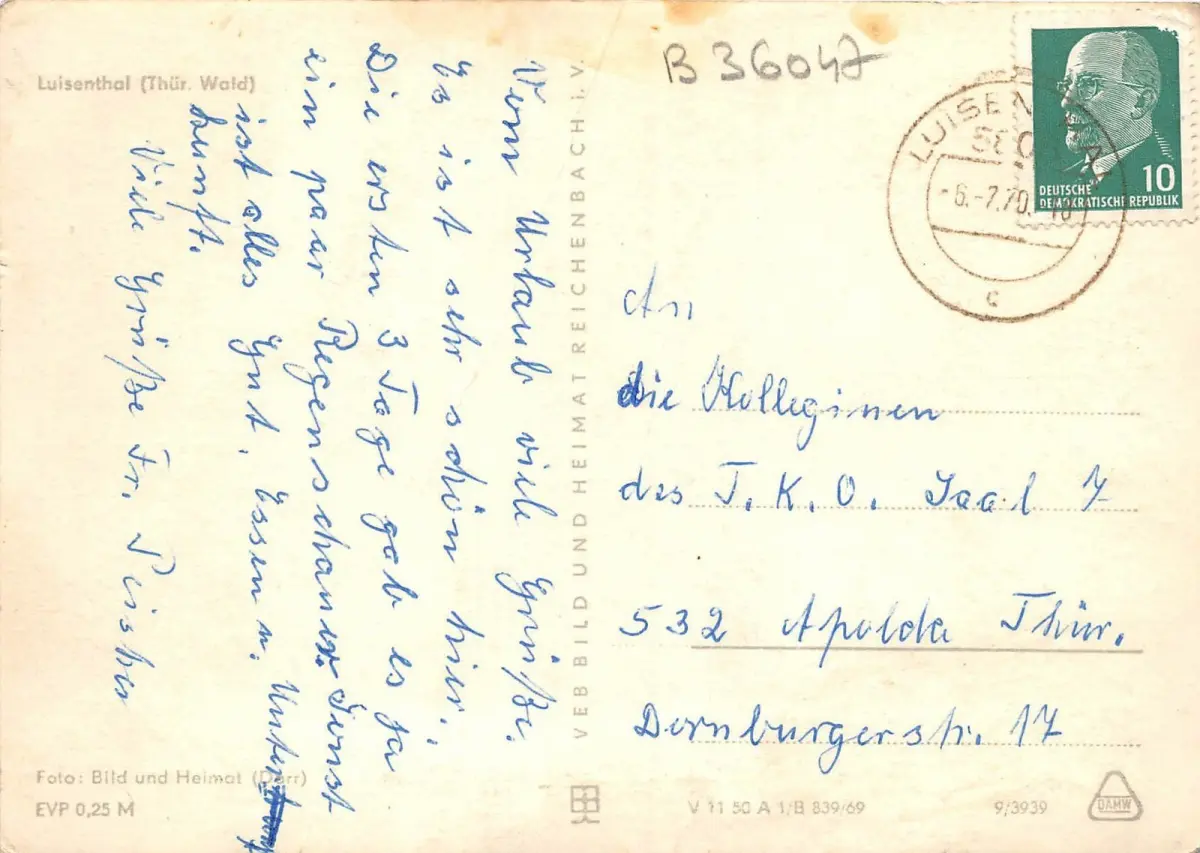 Luisenthal (Thür. Wald)
Vom Urlaub viele Grüße.
Es ist sehr schön hier.
Die ersten 3 Tage gab es ja
ein paar Regenschauer. Sonst
ist alles Gut. Essen u. Unter
kunft.
Viele Grüße Fr.
Foto: Bild und Heimat (Dörr)
EVP 0,25 M
VEB BILD UND HEIMAT REICHENBACH I. V.
B 36047
DEUTSCHE
DEMOKRATISCHE REPUBLIK
10
LUISENTHAL
-6.-7.70.
c
An
die Kolleginen
des T. K. O. Saal 7
532 Apolda Thür.
Dornburgerstr. 17
V 11 50 A 1/B 839/69
9/3939
DAMW